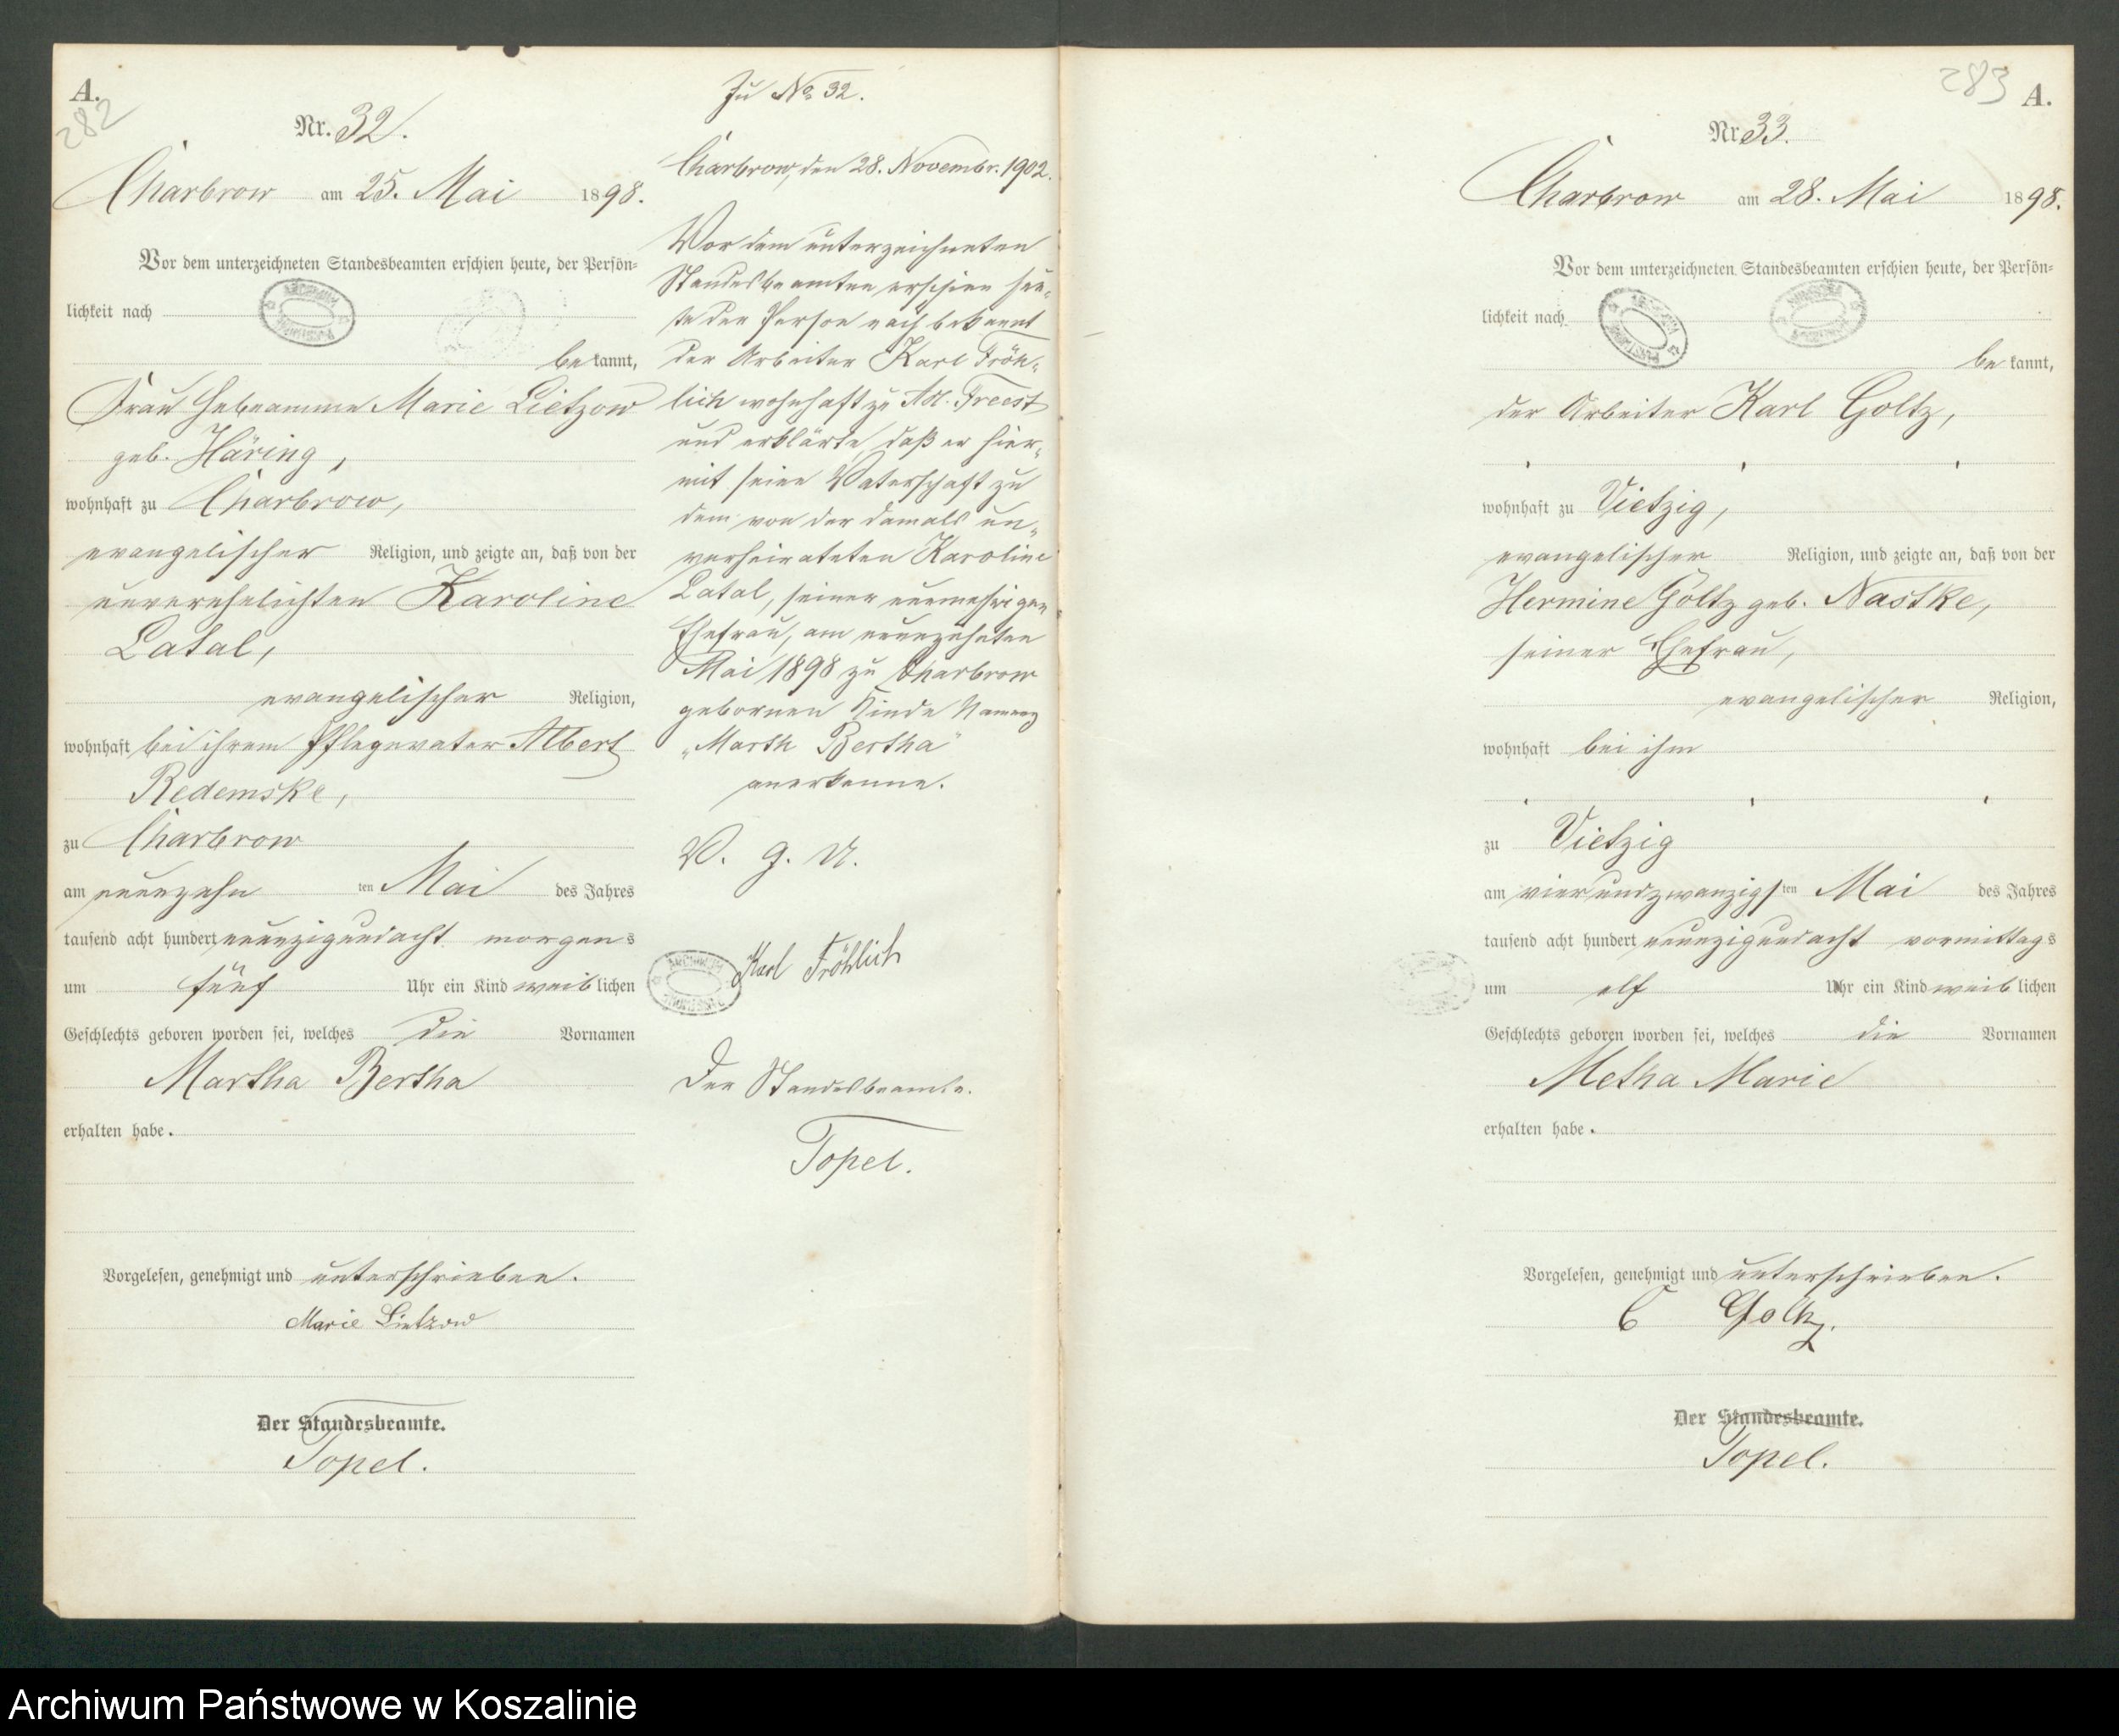 A.
282
Nr. 32.
Charbrow am 25. Mai 1898.
Vor dem unterzeichneten Standesbeamten erschien heute, der Persön-
lichkeit nach
be kannt,
Frau Hebeamme Marie Lietzow
geb. Häring,
wohnhaft zu Charbrow,
evangelischer Religion, und zeigte an, daß von der
unverehelichten Karoline
Latal,
evangelischer Religion,
wohnhaft bei ihrem Pflegevater Albert
Redemske,
zu Charbrow
am neunzehn ten Mai des Jahres
tausend acht hundert neunzigundacht morgens
um fünf Uhr ein Kind weiblichen
Geschlechts geboren worden sei, welches die Vornamen
Martha Bertha
erhalten habe.
Vorgelesen, genehmigt und unterschrieben.
Marie Lietzow
Der Standesbeamte.
Topel.
Zu No 32.
Charbrow, den 28. Novembr. 1902.
Vor dem unterzeichneten
Standesbeamten erschien heu-
te der Person nach bekannt
der Arbeiter Karl Fröh-
lich wohnhaft zu Adl. Freest
und erklärte, daß er hier-
mit seine Vaterschaft zu
dem von der damals un-
verheirateten Karoline
Latal, seiner nunmehrigen
Ehefrau, am neunzehnten
Mai 1898 zu Charbrow
gebornen Kinde Namens
„Marth Bertha"
anerkenne.
V. g. U.
Karl Fröhlich
Der Standesbeamte.
Topel.
283
A.
Nr 33.
Charbrow am 28. Mai 1898.
Vor dem unterzeichneten Standesbeamten erschien heute, der Persön-
lichkeit nach
be kannt,
der Arbeiter Karl Goltz,
wohnhaft zu Vietzig,
evangelischer Religion, und zeigte an, daß von der
Hermine Goltz geb. Nastke,
seiner Ehefrau,
evangelischer Religion,
wohnhaft bei ihm
zu Vietzig
am vierundzwanzigsten Mai des Jahres
tausend acht hundert neunzigundacht vormittags
um elf Uhr ein Kind weiblichen
Geschlechts geboren worden sei, welches die Vornamen
Metha Marie
erhalten habe.
Vorgelesen, genehmigt und unterschrieben.
C Goltz.
Der Standesbeamte.
Topel.
Archiwum Państwowe w Koszalinie